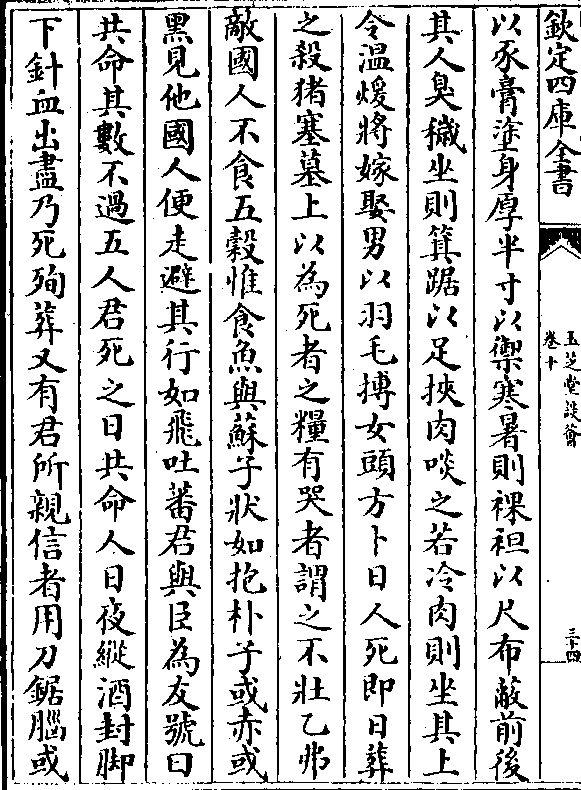 欽定四庫全書
玉芝堂談薈
卷十
三十四
以豕膏塗身厚半寸以禦寒暑則裸袒以尺布蔽前後
其人臭穢坐則箕踞以足挾肉啖之若冷肉則坐其上
令温煖將嫁娶男以羽毛摶女頭方卜日人死即日葬
之殺猪塞墓上以為死者之糧有哭者謂之不壯乙弗
敵國人不食五穀惟食魚與蘇子狀如抱朴子或赤或
黑見他國人便走避其行如飛吐蕃君與臣為友號曰
共命其數不過五人君死之日共命人日夜縱酒封脚
下針血出盡乃死殉葬又有君所親信者用刀鋸腦或